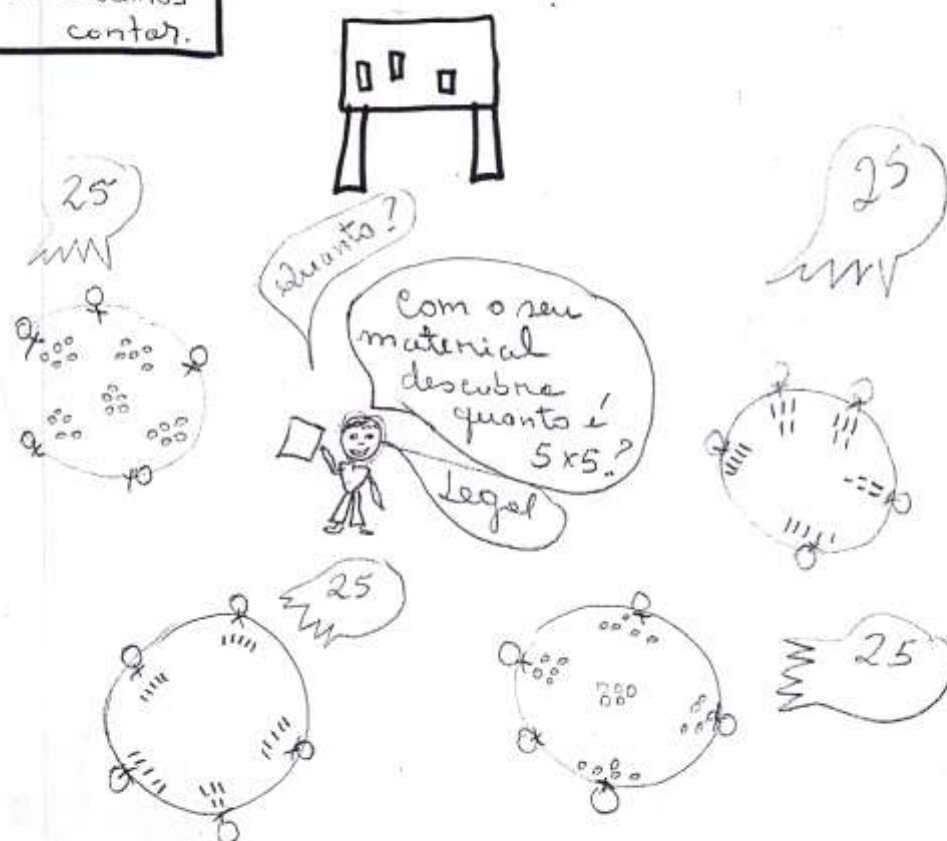 contar.
25
25
Quanto?
Com o seu
material
descubra
quanto é
5x5?
Legal
25
25